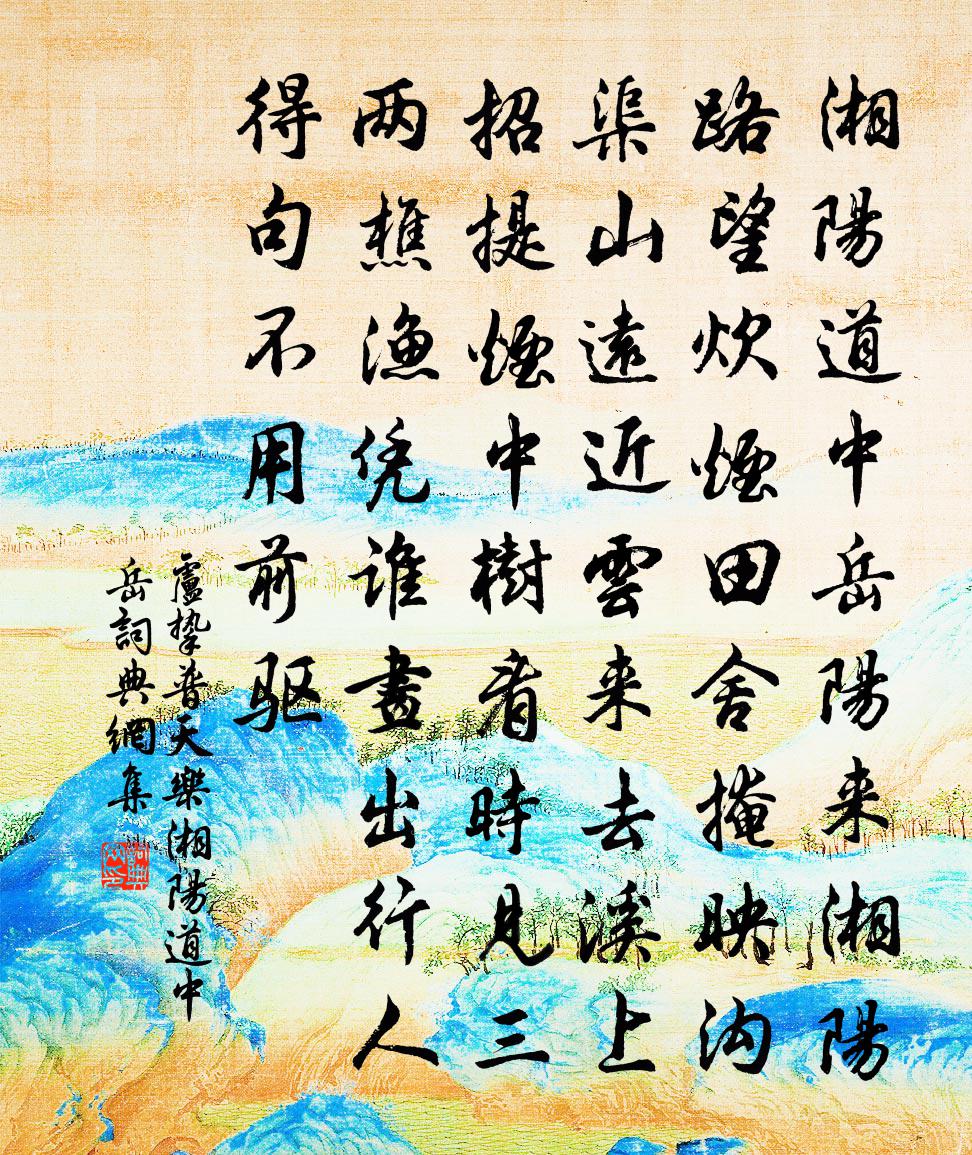 湘陽道中岳陽来湘陽
路望炊煙田舍掩映沟
渠山遠近雲来去溪上
招提煙中樹看時見三
两樵漁凭誰畫出行人
得句不用前驱
盧挚普天樂湘陽道中
岳詞典網集